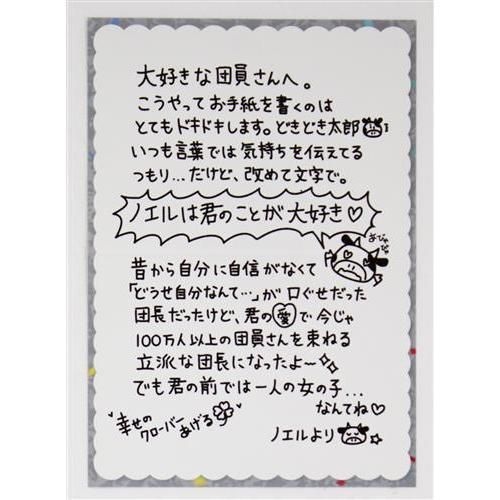 大好きな団員さんへ。
こうやってお手紙を書くのは
とてもドキドキします。どきどき太郎
いつも言葉では気持ちを伝えてる
つもり...だけど、改めて文字で。
ノエルは君のことが大好き♡
おぴゃぴゃ
昔から自分に自信がなくて
「どうせ自分なんて…」が口ぐせだった
団長だったけど、君の愛で今じゃ
100万人以上の団員さんを束ねる
立派な団長になったよ〜✨
でも君の前では一人の女の子...
なんてね♡
幸せの
クローバー
あげる
ノエルより